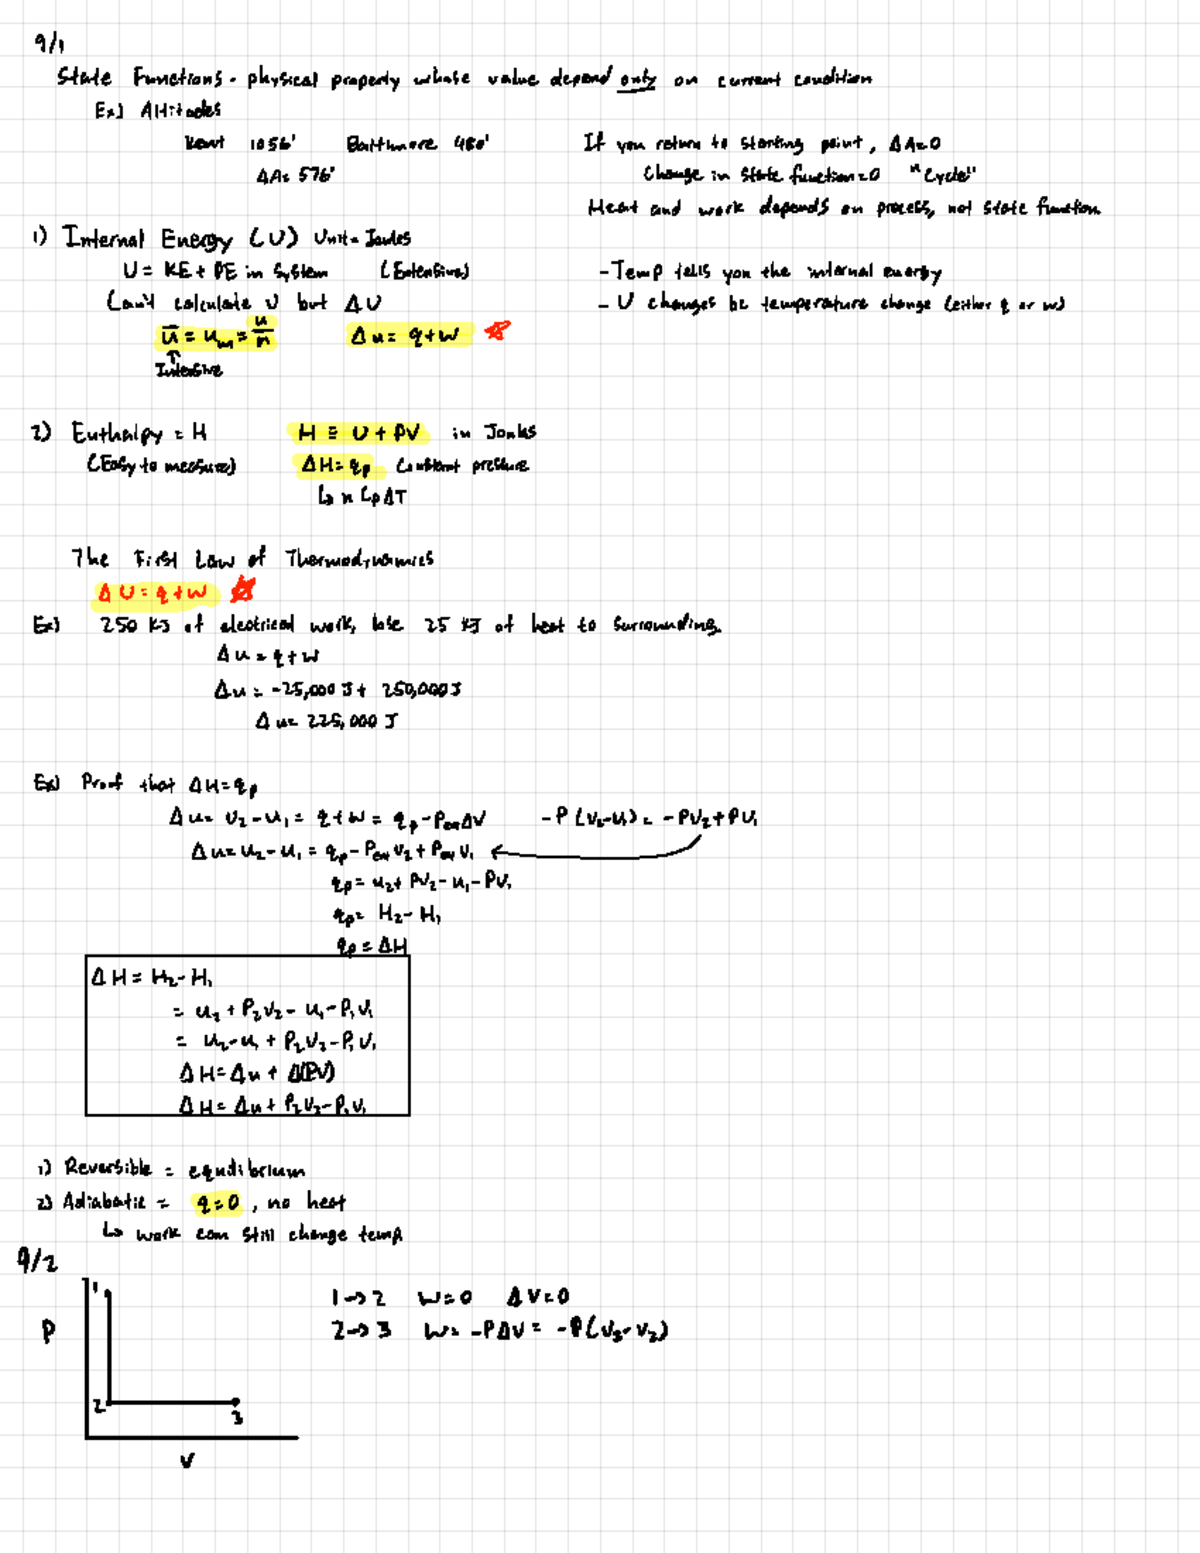 9/1
State Functions - physical property whose value depend only on current condition
Ex) Altitudes
Kent 1056' Baltimore 480'
ΔA= 576'
If you return to starting point, ΔA=0
Change in state function=0 "Cycle"
Heat and work depends on process, not state function
1) Internal Energy (U) Unit= Joules
U= KE+ PE in system (Extensive)
Can't calculate U but ΔU
ū = u_m = u/n Δu= q+w
↑
Intensive
-Temp tells you the internal energy
- U changes bc temperature change (either q or w)
2) Enthalpy = H H ≡ U + PV in Joules
(Easy to measure) ΔH= q_p Constant pressure
↳ n C_p ΔT
The First Law of Thermodynamics
ΔU= q+w
Ex) 250 KJ of electrical work, lose 25 KJ of heat to surrounding.
Δu = q+w
Δu = -25,000 J + 250,000 J
Δu= 225,000 J
Ex) Proof that ΔH=q_p
Δu= U₂-u₁ = q+w = q_p-P_exΔV -P(V₂-V₁)= -PV₂+PV₁
Δu= u₂-u₁ = q_p- P_ex V₂+ P_ex V₁
q_p= u₂+ PV₂- u₁-PV₁
q_p= H₂- H₁
q_p = ΔH
ΔH = H₂-H₁
= u₂ + P₂V₂- u₁-P₁V₁
= u₂-u₁ + P₂V₂-P₁V₁
ΔH=Δu+ Δ(PV)
ΔH= Δu+ P₂V₂-P₁V₁
1) Reversible = equilibrium
2) Adiabatic = q=0, no heat
↳ work can still change temp
9/2
1→2 w=0 ΔV=0
2→3 w= -PΔV= -P(V₃-V₂)
1
P
2
3
V